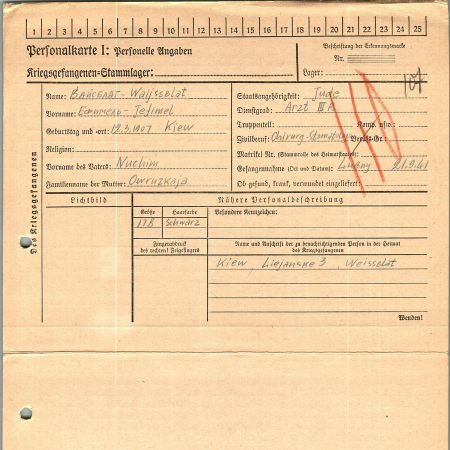 1 2 3 4 5 6 7 8 9 10 11 12 13 14 15 16 17 18 19 20 21 22 23 24 25
Personalkarte I: Personelle Angaben
Kriegsgefangenen-Stammlager:
Beschriftung der Erkennungsmarke
Nr.
Lager:
Des Kriegsgefangenen
Name: Вайсблат - Waijsselat
Vorname: - Jefimel
Geburtstag und -ort: 12.3.1907 Kiew
Religion:
Vorname des Vaters: Nuchim
Familienname der Mutter: Owruzkaja
Staatsangehörigkeit: Jude
Dienstgrad: Arzt III R
Truppenteil: Komp. usw.:
Zivilberuf: Chirurg- Berufs-Gr.:
Matrikel Nr. (Stammrolle des Heimatstaates):
Gefangennahme (Ort und Datum): 21.9.41
Ob gesund, krank, verwundet eingeliefert:
Lichtbild
Nähere Personalbeschreibung
Größe Haarfarbe Besondere Kennzeichen:
178 schwarz
Fingerabdruck
des rechten! Zeigefingers
Name und Anschrift der zu benachrichtigenden Person in der Heimat
des Kriegsgefangenen
Kiew, Liejanske 3, Weisselat
Wenden!